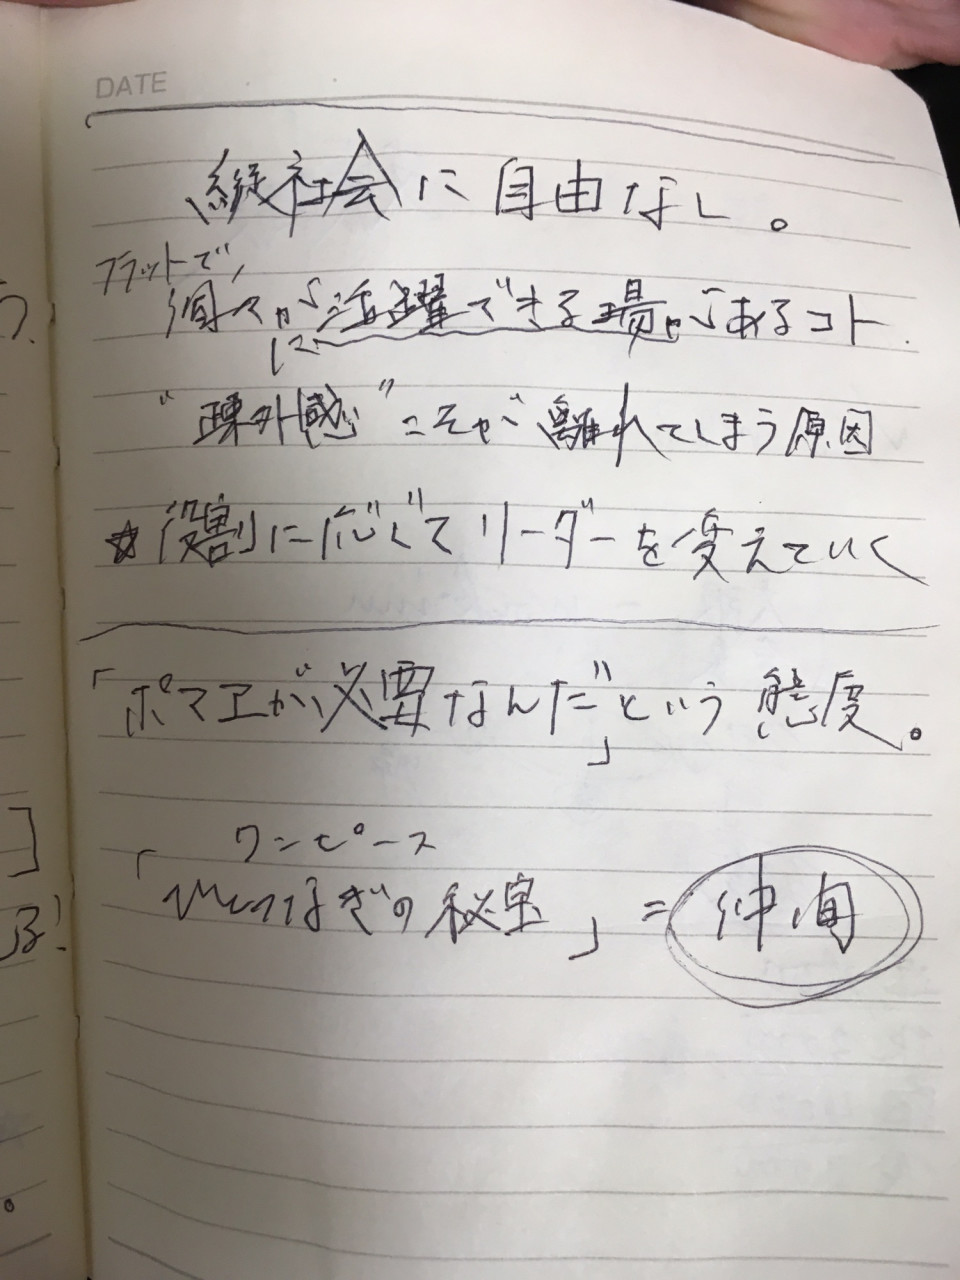 DATE
縦社会に自由なし。
フラットで、
個々が活躍できる場があるコト
"疎外感"こそが離れてしまう原因
☆役割に応じてリーダーを変えていく
「ポマエが必要なんだ」という態度。
ワンピース
「ひとつなぎの秘宝」=仲間